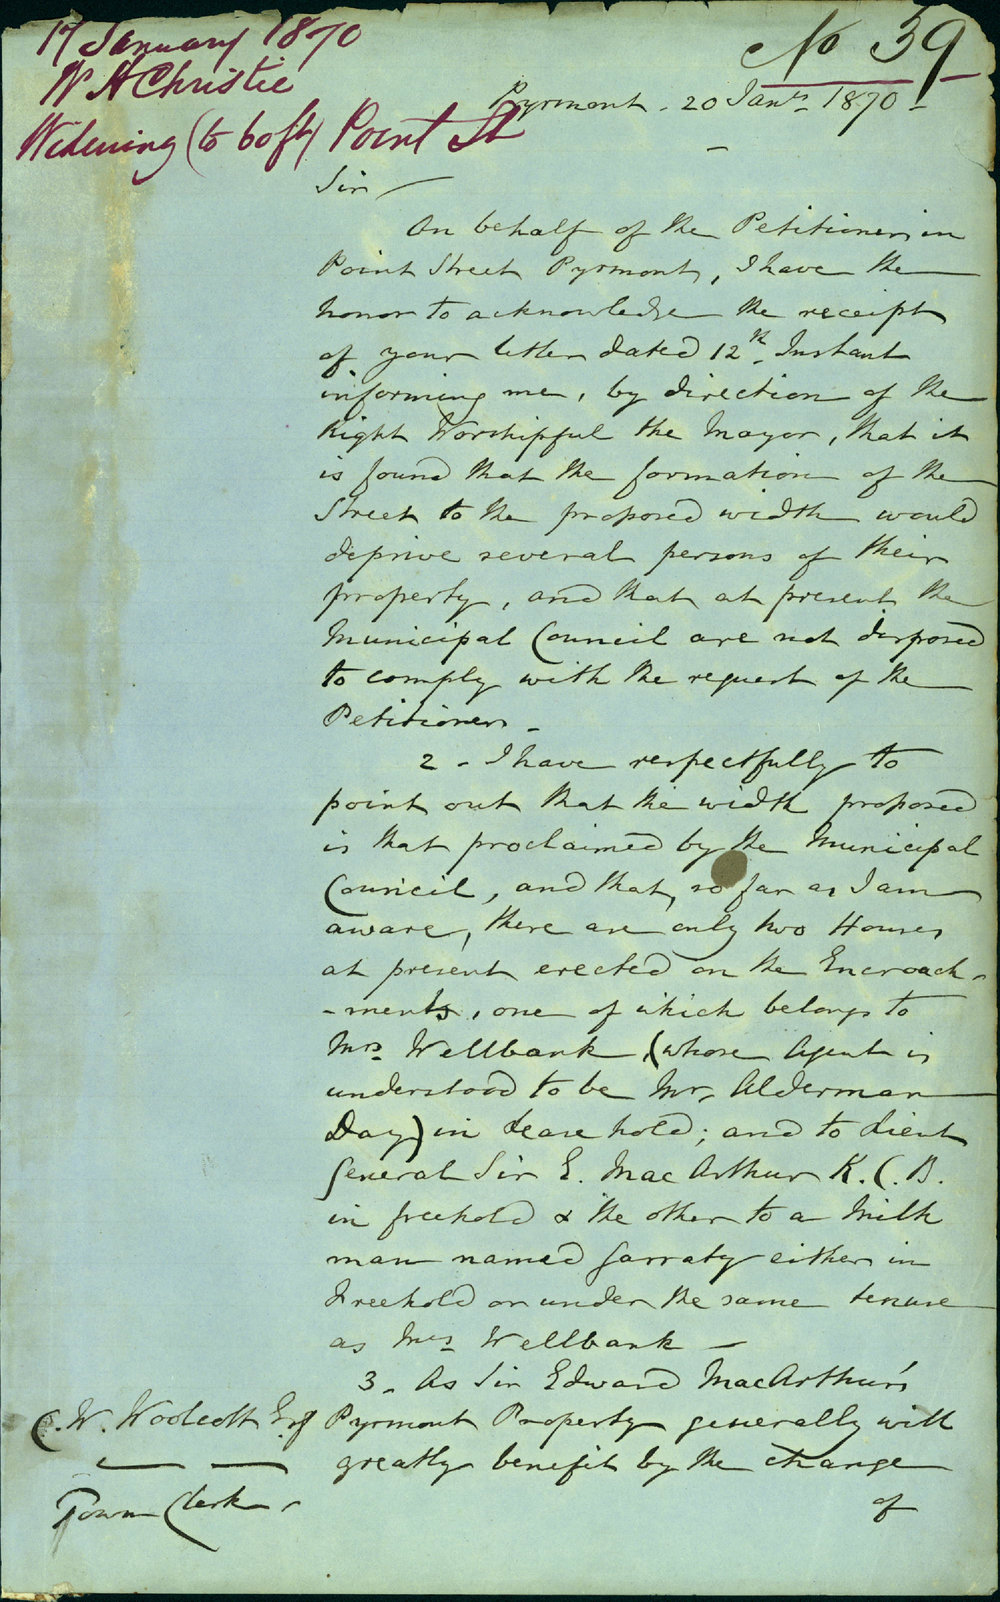 17 January 1870
W H Christie
Widening (to 60 ft) Point St
No 39
Pyrmont - 20 Jany. 1870 -
Sir
On behalf of the Petitioners in
Point Street Pyrmont, I have the
honor to acknowledge the receipt
of your letter dated 12th. Instant
informing me, by direction of the
Right Worshipful the Mayor, that it
is found that the formation of the
Street to the proposed width would
deprive several persons of their
property, and that at present the
Municipal Council are not disposed
to comply with the request of the
Petitioners -
2 - I have respectfully to
point out that the width proposed
is that proclaimed by the Municipal
Council, and that, so far as I am
aware, there are only two Houses
at present erected on the Encroach-
-ments, one of which belongs to
Mrs. Wellbank, (whose Agent is
understood to be Mr. Alderman
Day) in Lease hold; and to Lieut
General Sir E. MacArthur K.C.B.
in freehold & the other to a Milk
man named Garraty either in
Freehold or under the same tenure
as Mrs Wellbank -
3 - As Sir Edward MacArthur's
Pyrmont Property generally will
greatly benefit by the change
of
C. W. Woolcott Esq
Town Clerk